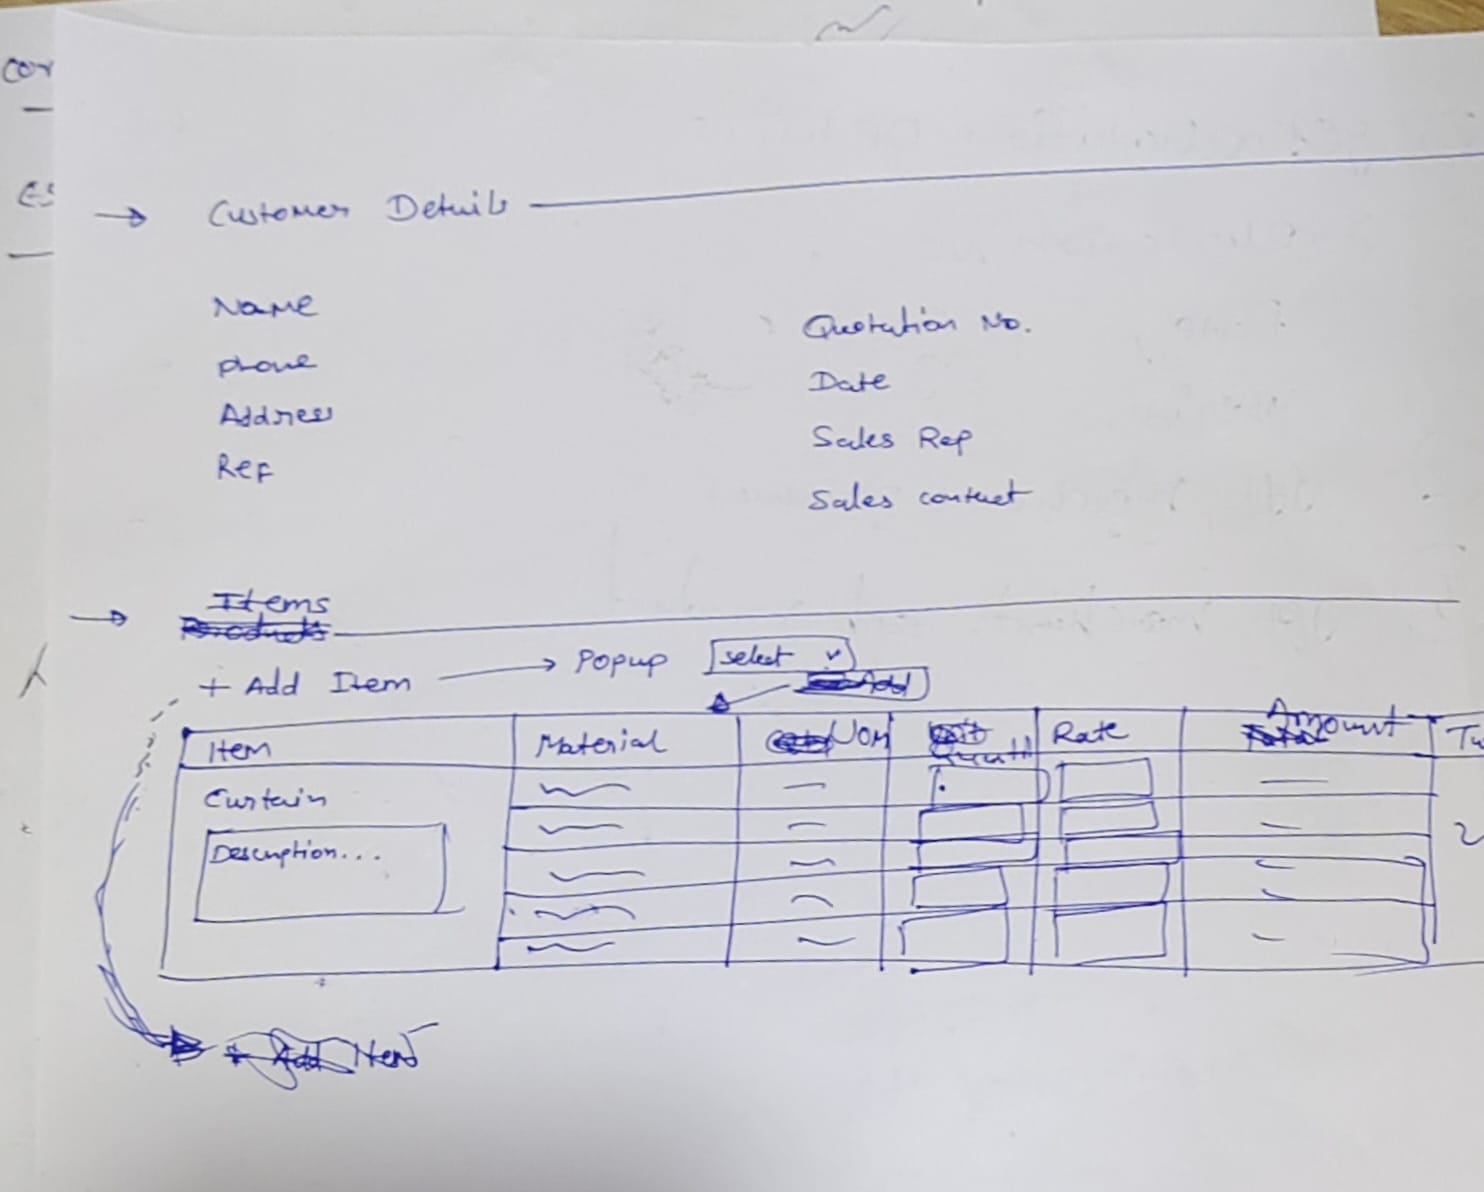 Customer Details
Name
Phone
Address
Ref
Quotation No.
Date
Sales Rep
Sales contact
Items
Products
+ Add Item → Popup select
Add
Item Material UOM Rate Amount
Curtain
Description...
+ Add Item